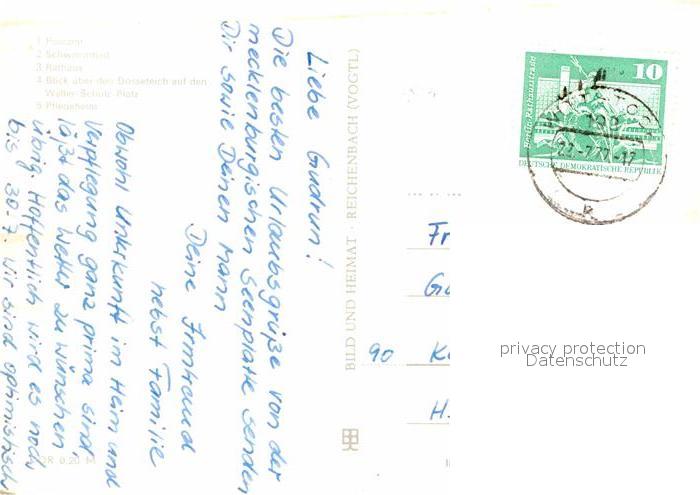 1 Postamt
2 Schwimmbad
3 Rathaus
4 Blick über den Dosseteich auf den
Walter-Schulz-Platz
5 Pflegeheim
Liebe Gudrun!
Die besten Urlaubsgrüße von der
mecklenburgischen Seenplatte senden
Dir sowie Deinen Mann
Deine Irmtraud
nebst Familie
Obwohl Unterkunft im Heim und
Verpflegung ganz prima sind,
läßt das Wetter zu wünschen
übrig. Hoffentlich wird es noch
bis 30.7. Wir sind optimistisch
0,20 M
BILD UND HEIMAT · REICHENBACH (VOGTL)
10
Berlin, Rathausstraße
DEUTSCHE DEMOKRATISCHE REPUBLIK
190
Fr
Gu
90 K
H.
privacy protection
Datenschutz